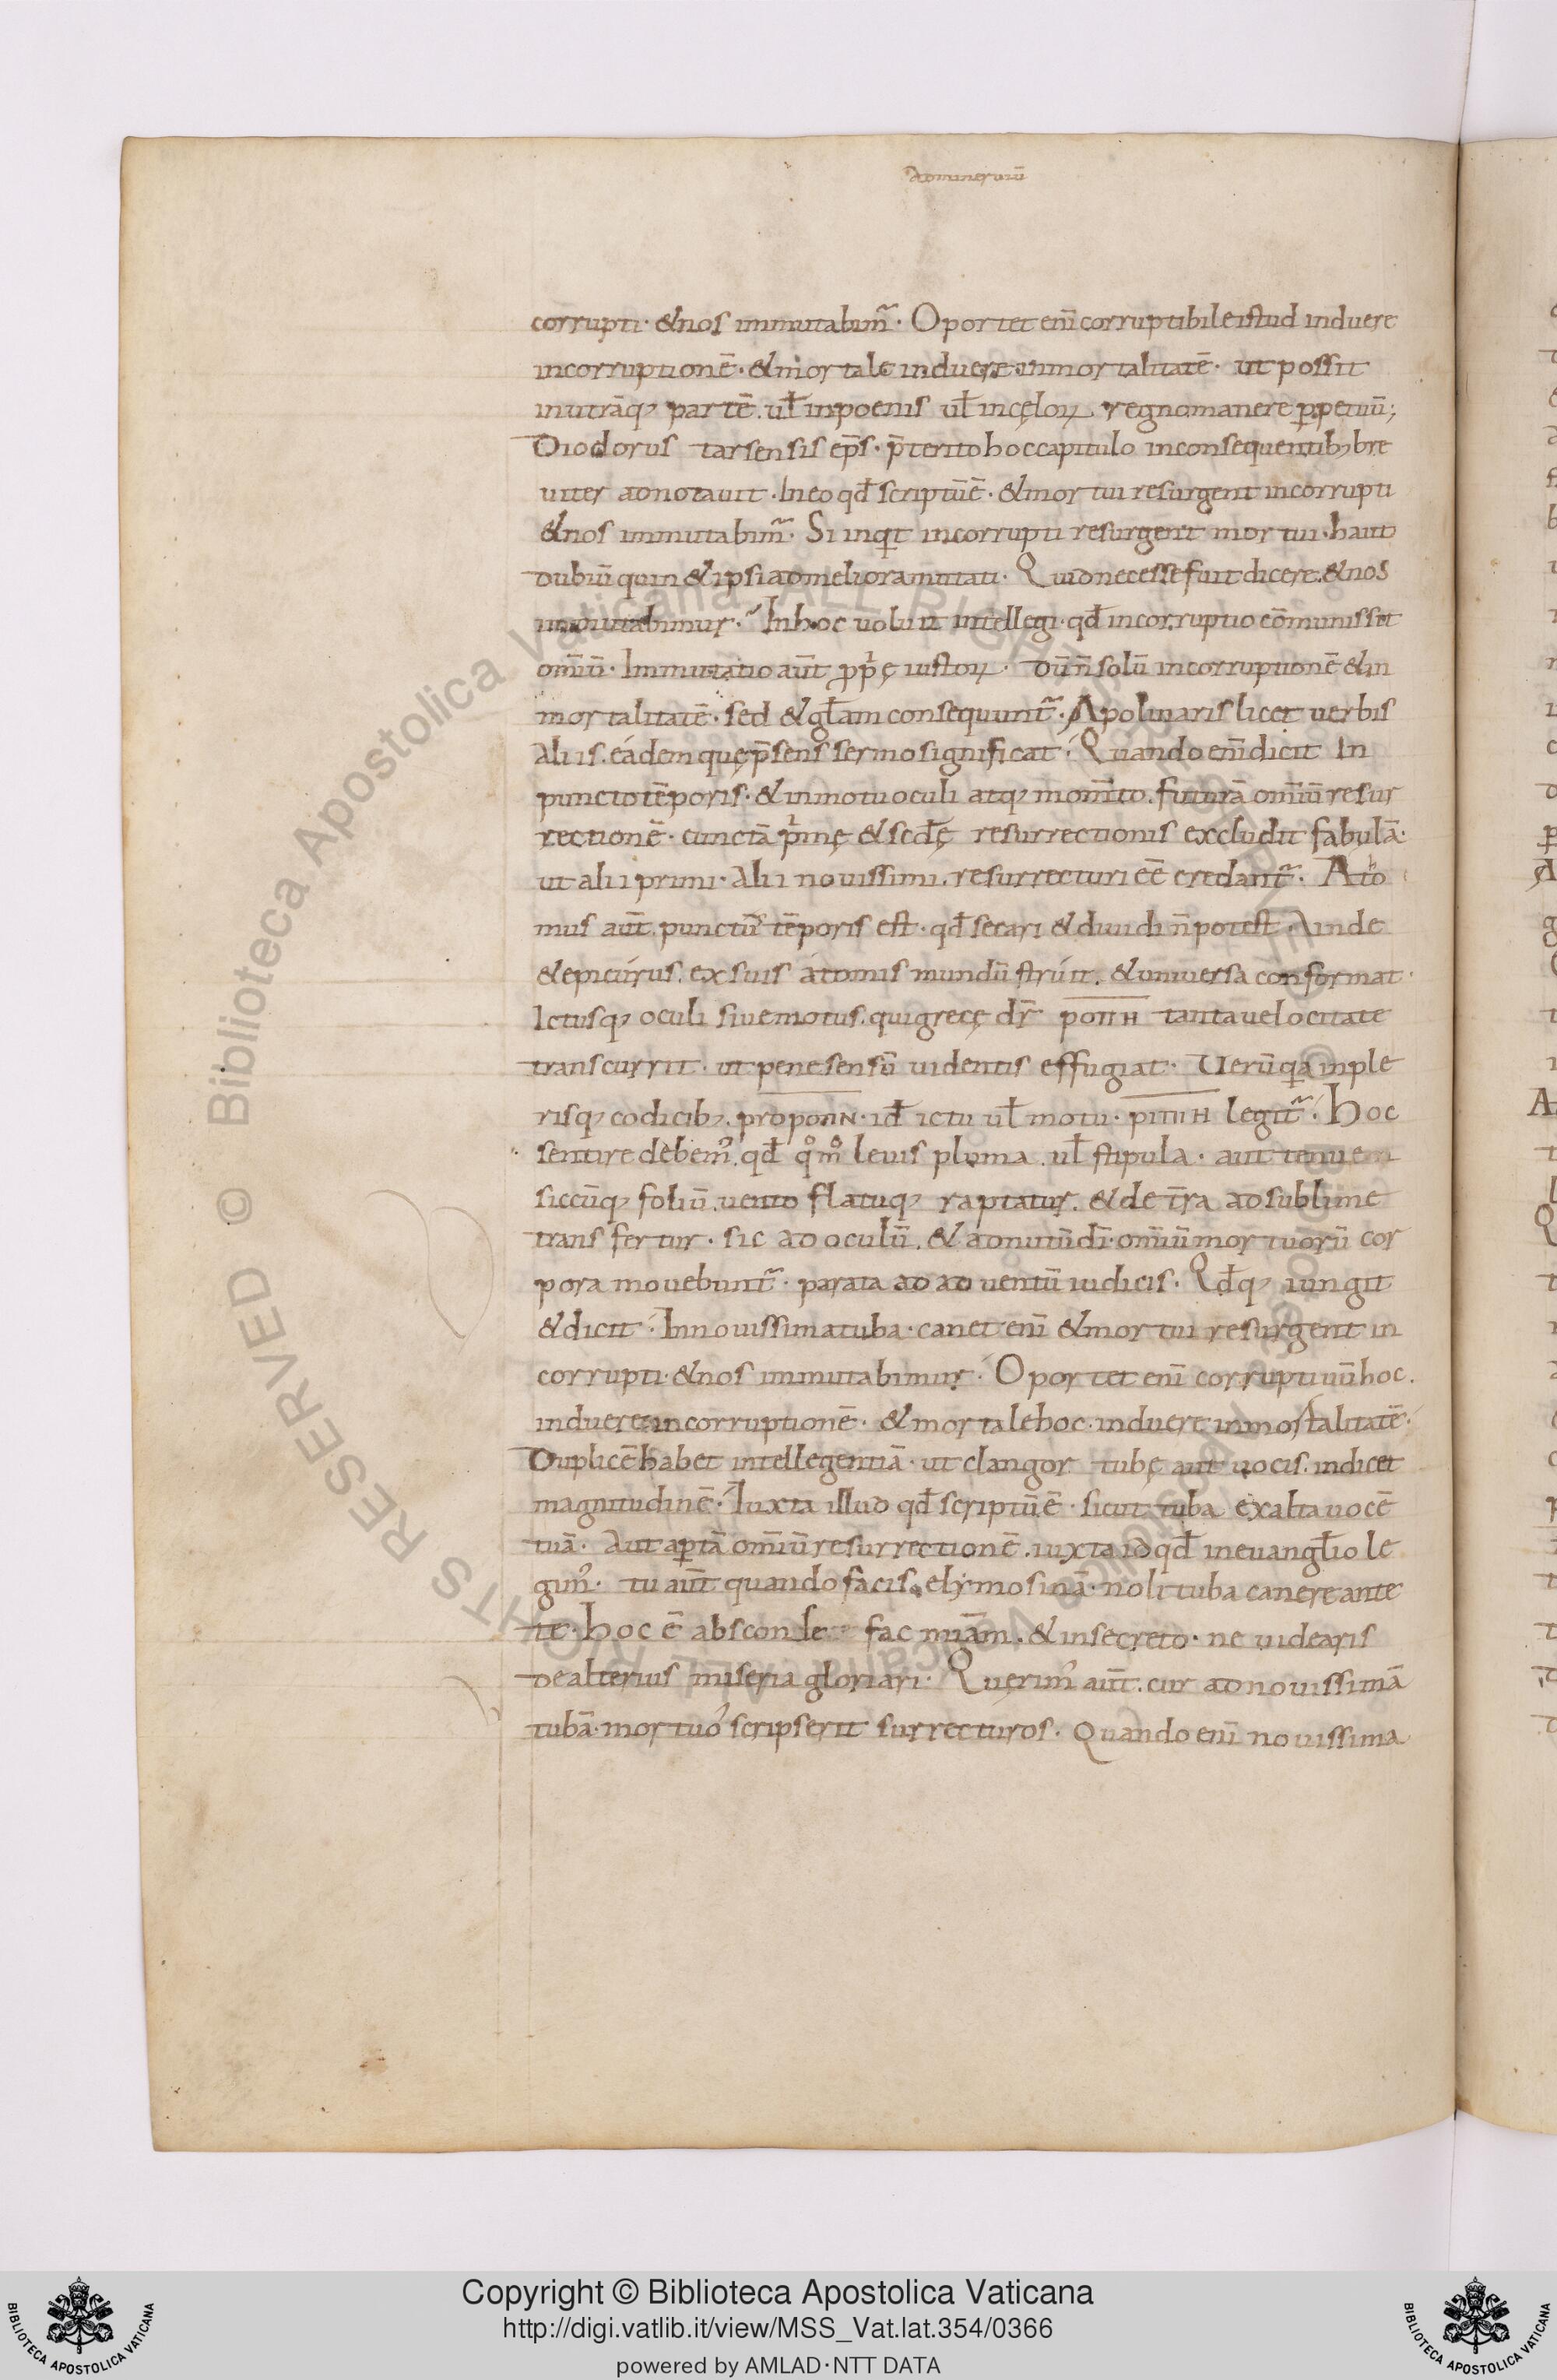 adminerviũ
corrupti· & nos immutabim̃· Oportet enĩ corruptibile istud induere
incorruptionẽ· & mortale induere inmortalitatẽ· ut possit
in utrãq; partẽ. ul̃ in poenis ul̃ in cęloꝝ regno manere ꝑpetuũ;
Diodorus tarsensis ep̃s· p̃terito hoc capitulo in consequentib; bre
viter adnotavit· In eo qđ scriptũ ẽ· & mortui resurgent incorrupti
& nos immutabim̃· Si inqͥt incorrupti resurgent mortui· haut
dubiũ quin & ipsi ad meliora mutati· Quid necesse fuit dicere. & nos
inmutabimur· In hoc voluit intellegi· qđ incorruptio cõmunis sit
om̃iũ· Immutatio aũt ꝓpͥę iustoꝝ· dũ ñ solũ incorruptionẽ & in
mortalitatẽ· sed & gl̃am consequunt̃· Apolinaris licet verbis
aliis. eadem quę p̃sens sermo significat· Quando enĩ dicit In
puncto tẽporis· & in motu oculi atq; mom̃to. futurã om̃iũ resur
rectionẽ· cunctã pͥmę & secđę resurrectionis excludit fabulã·
ut alii primi· alii novissimi. resurrecturi eẽ credant̃· Ato
mus aũt. punctũ tẽporis est· qđ secari & dividi ñ potest· Ainde
& epicurus. ex suis atomis mundũ struit. & universa conformat·
Ictusq; oculi sive motus. qui grecę dr̃ ροπη tanta velocitate
transcurrit· ut pene sensũ videntis effugiat· Verũ qͥa in ple
risq; codicib;. pro ροπη· id̃ ictu ul̃ motu· ριπη legit̃· Hoc
sentire debem᾽. qđ qͦmͦ levis pluma. ul̃ stipula· aut tenuem
siccũq; foliũ. vento flatuq; raptatur. & de t̃ra ad sublime
transfertur· sic ad oculũ. & ad nutũ dĩ· om̃iũ mortuorũ cor
pora movebunt̃· parata ad adventũ iudicis· Qđq; iungit
& dicit· In novissima tuba· canet enĩ & mortui resurgent in
corrupti· & nos inmutabimur· Oportet enĩ corruptivũ hoc.
induere incorruptionẽ· & mortale hoc· induere inmortalitatẽ·
Duplicẽ habet intellegentiã· ut clangor tubę aut vocis. indicet
magnitudinẽ· Iuxta illud qđ scriptũ ẽ· sicut tuba exalta vocẽ
tuã· Aut aꝑtã om̃iũ resurrectionẽ. iuxta id qđ in evangl̃io le
gim᾽· tu aũt quando facis elymosinã· noli tuba canere ante
te· hoc ẽ absconde fac mĩam. & in secreto· ne videaris
de alterius miseria gloriari· Quęrim᾽ aũt. cur ad novissimã
tubã· mortuo᾽ scripserit surrecturos· Quando enĩ novissima
Copyright © Biblioteca Apostolica Vaticana
http://digi.vatlib.it/view/MSS_Vat.lat.354/0366
powered by AMLAD·NTT DATA